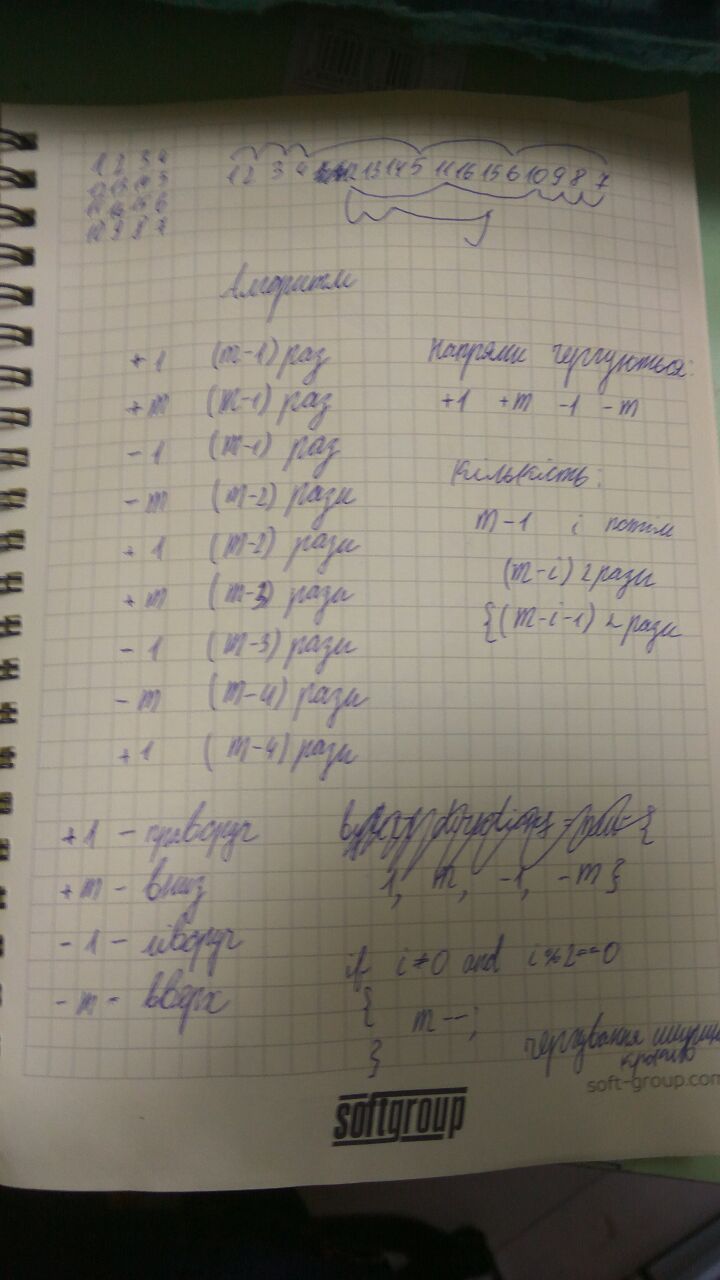 1 2 3 4
12 13 14 5
11 16 15 6
10 9 8 7
1 2 3 4 12 13 14 5 11 16 15 6 10 9 8 7
Алгоритм
+1 (m-1) раз
+m (m-1) раз
-1 (m-1) раз
-m (m-2) рази
+1 (m-2) рази
+m (m-3) рази
-1 (m-3) рази
-m (m-4) рази
+1 (m-4) рази
Напрями чергуються:
+1 +m -1 -m
Кількість:
m-1 і потім
(m-i) 2 рази
{(m-i-1) 2 рази
+1 - праворуч
+m - вниз
-1 - ліворуч
-m - вверх
1, m, -1, -m }
if i≠0 and i%2==0
{
m--;
}
чергування
softgroup
soft-group.com